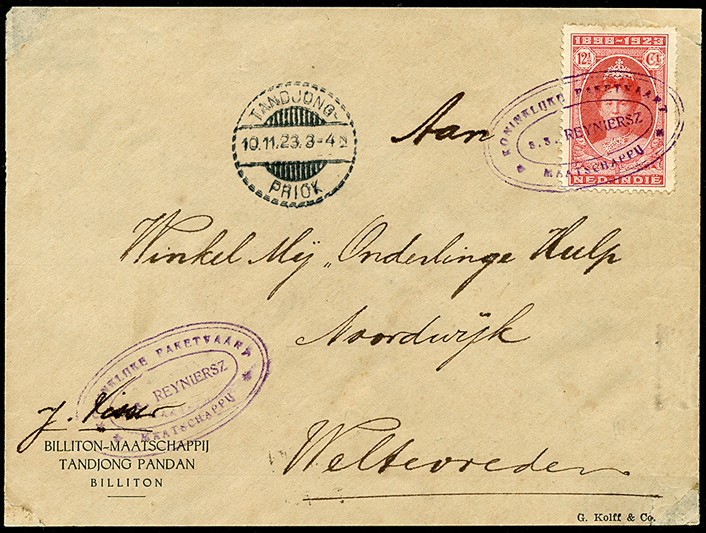 1898-1923
12½ Ct
NED-INDIË
KONINKLIJKE PAKETVAART
S.S. REYNIERSZ
MAATSCHAPPIJ
TANDJONG-
10.11.23.3-4 N
PRIOK
Aan
Winkel Mij „Onderlinge Hulp
Noordwijk
Weltevreden
KONINKLIJKE PAKETVAART
S.S. REYNIERSZ
MAATSCHAPPIJ
J.
BILLITON-MAATSCHAPPIJ
TANDJONG PANDAN
BILLITON
G. Kolff & Co.